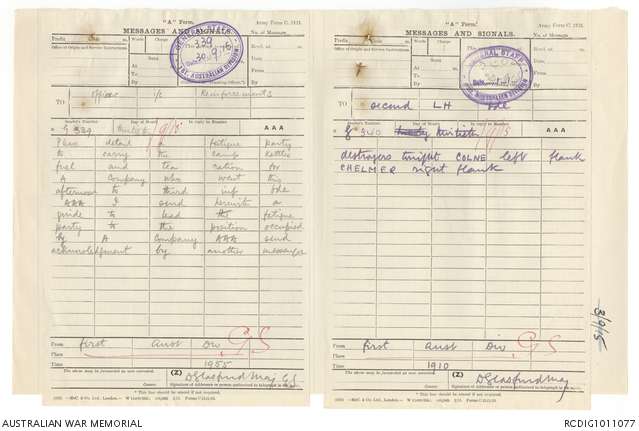 "A" Form.
Army Form C. 2121.
MESSAGES AND SIGNALS.
No. of Message
Prefix Code m. Words Charge
Office of Origin and Service Instructions.
Sent
At m.
To
By
GENERAL STAFF
339
30.9.15
1ST AUSTRALIAN DIVISION
Recd. at m.
Date
From
By
TO Officer i/c Reinforcements
Sender's Number Day of Month In reply to Number AAA
G 339
Pleas detail a fatigue party
to carry the camp kettles
fuel and tea ration for
A Company who went this
afternoon to third inf Bde
AAA I send herewith a
guide to lead the fatigue
party to the position occupied
by A Company AAA send
acknowledgment by another messenger
From first Aust Div G S
Place
Time 1955
The above may be forwarded as now corrected. (Z)
Censor. Signature of Addressor or person authorised to telegraph in his name.
DGlasfurd Maj G.S
* This line should be erased if not required.
"A" Form.
Army Form C. 2121.
MESSAGES AND SIGNALS.
No. of Message
Prefix Code m. Words Charge
Office of Origin and Service Instructions.
Sent
At m.
To
By
GENERAL STAFF
1ST AUSTRALIAN DIVISION
Recd. at m.
Date
From
By
TO second LH Bde
Sender's Number Day of Month In reply to Number AAA
G 340
destroyers tonight COLNE left flank
CHELMER right flank
From first Aust Div G S
Place
Time 1910
The above may be forwarded as now corrected. (Z)
Censor. Signature of Addressor or person authorised to telegraph in his name.
DGlasfurd Maj
* This line should be erased if not required.
AUSTRALIAN WAR MEMORIAL
RCDIG1011077